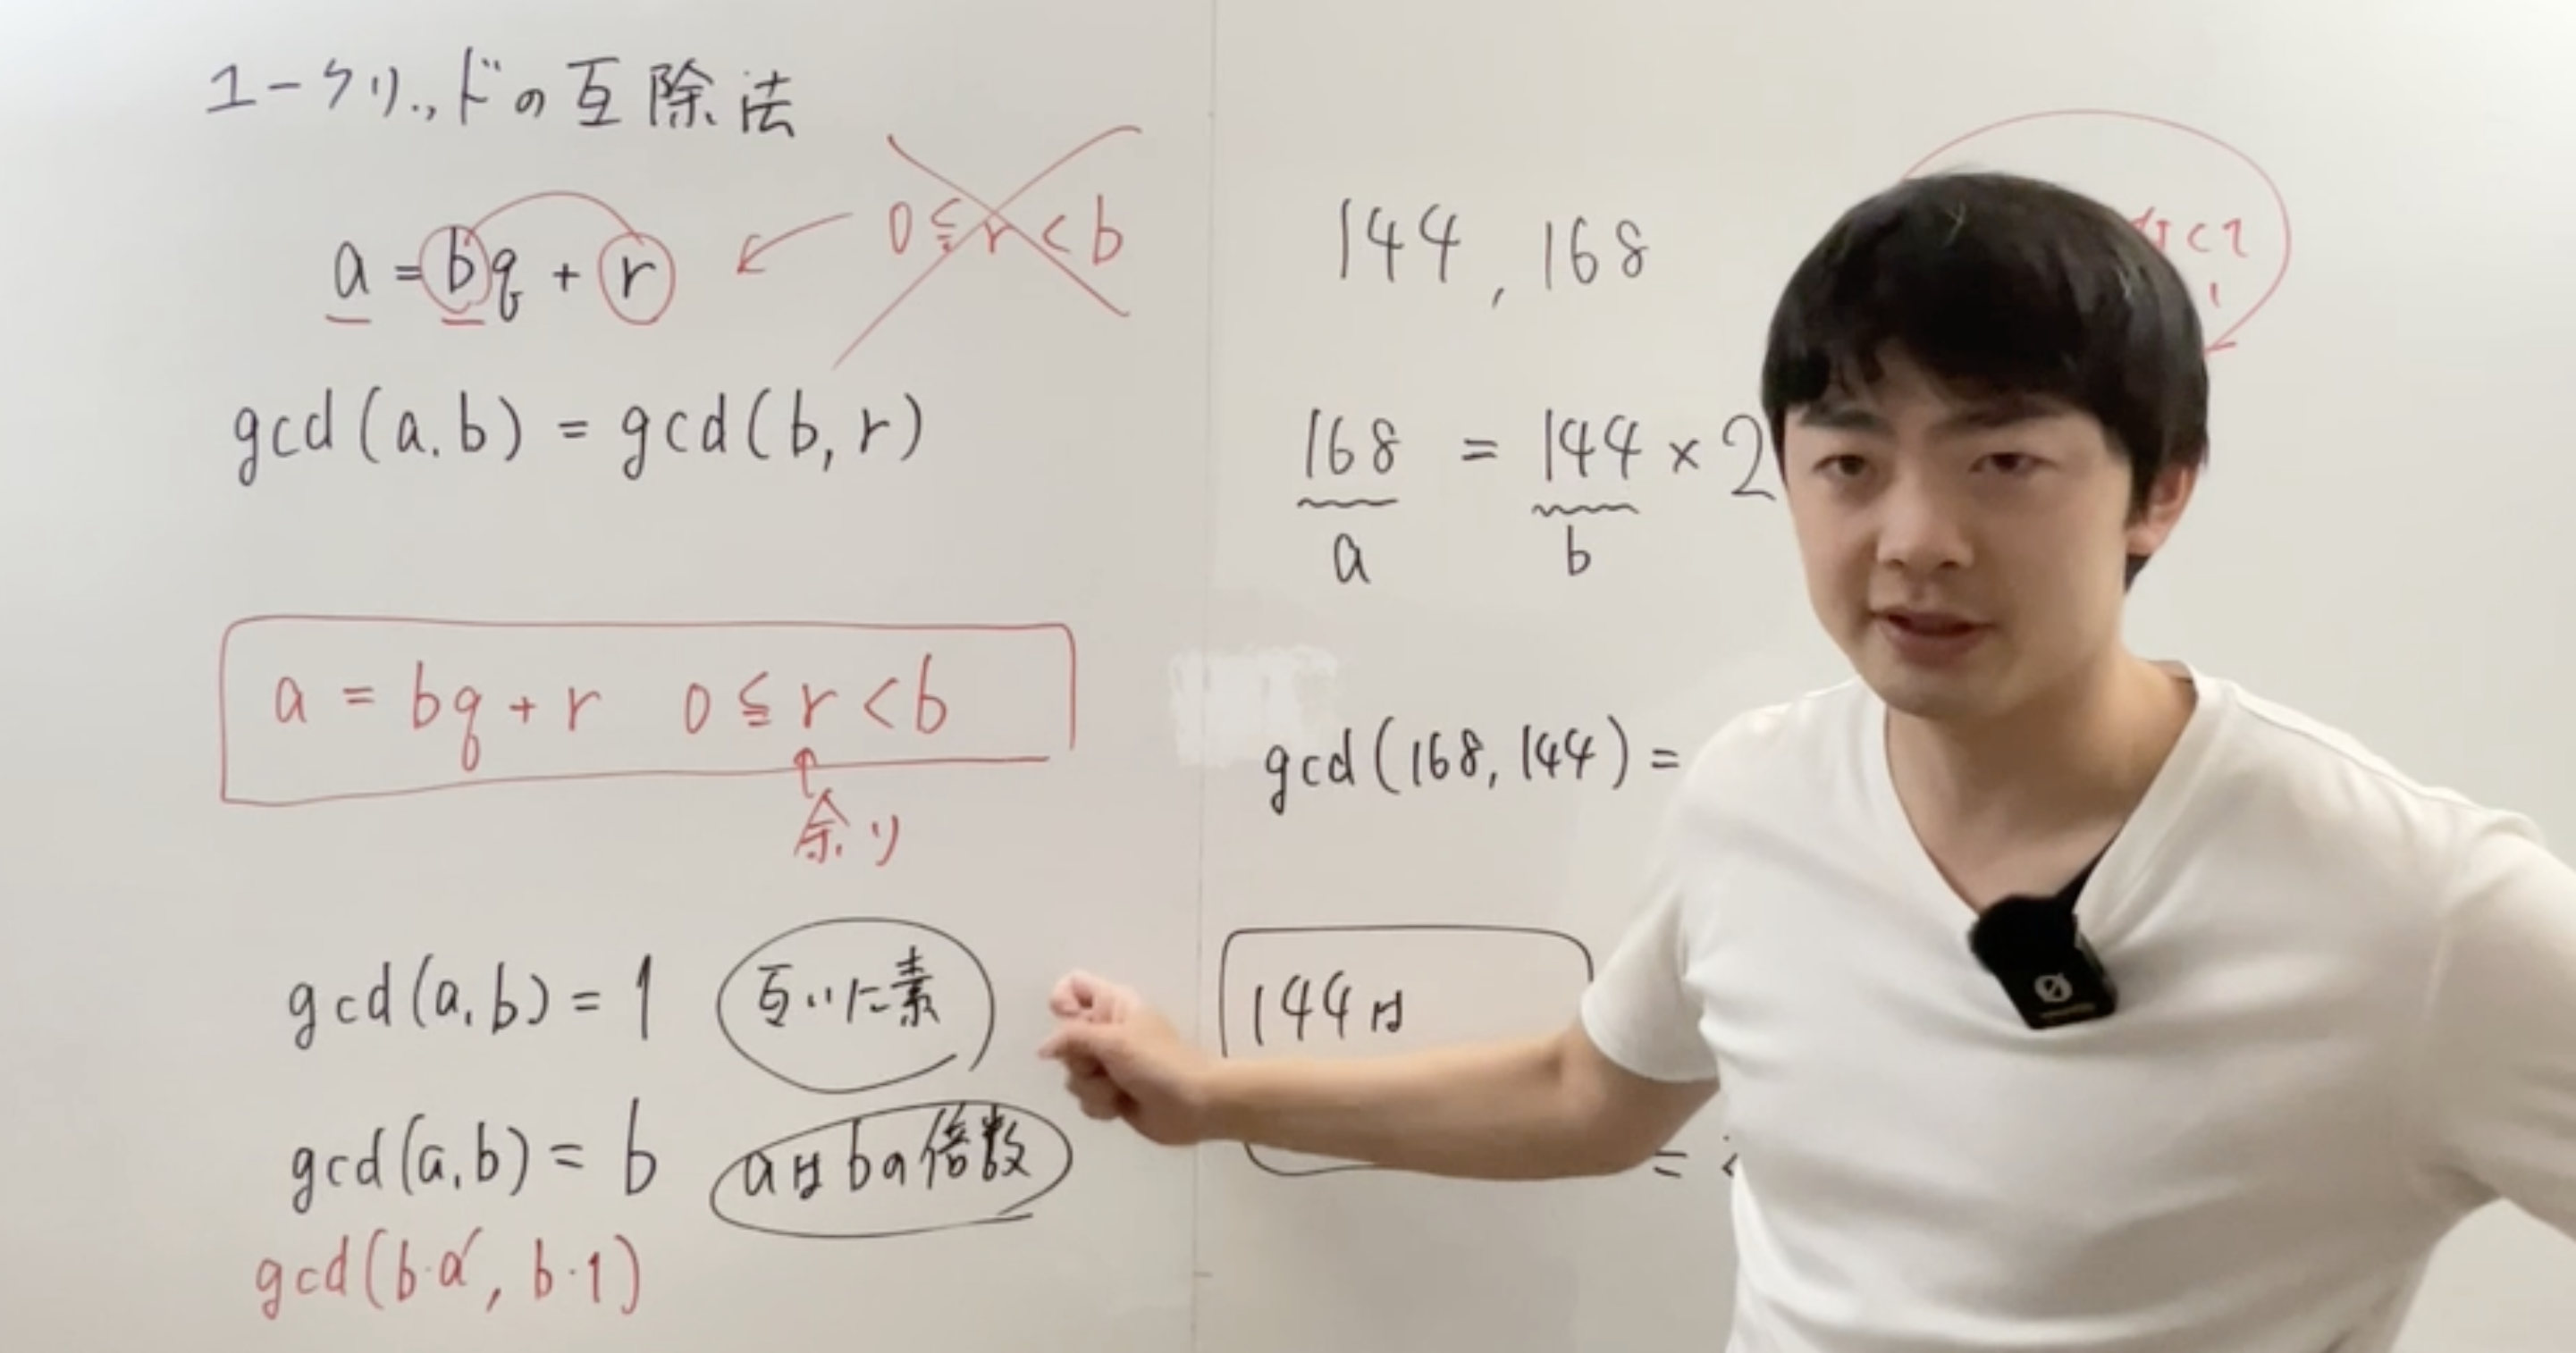 ユークリッドの互除法
a = bq + r
0 ≦ r < b
gcd(a.b) = gcd(b,r)
a = bq + r 0 ≦ r < b
余り
gcd(a,b) = 1 互いに素
gcd(a,b) = b aはbの倍数
gcd(b·a′, b·1)
144, 168
168 = 144 × 2
a b
gcd(168, 144) =
144は
=